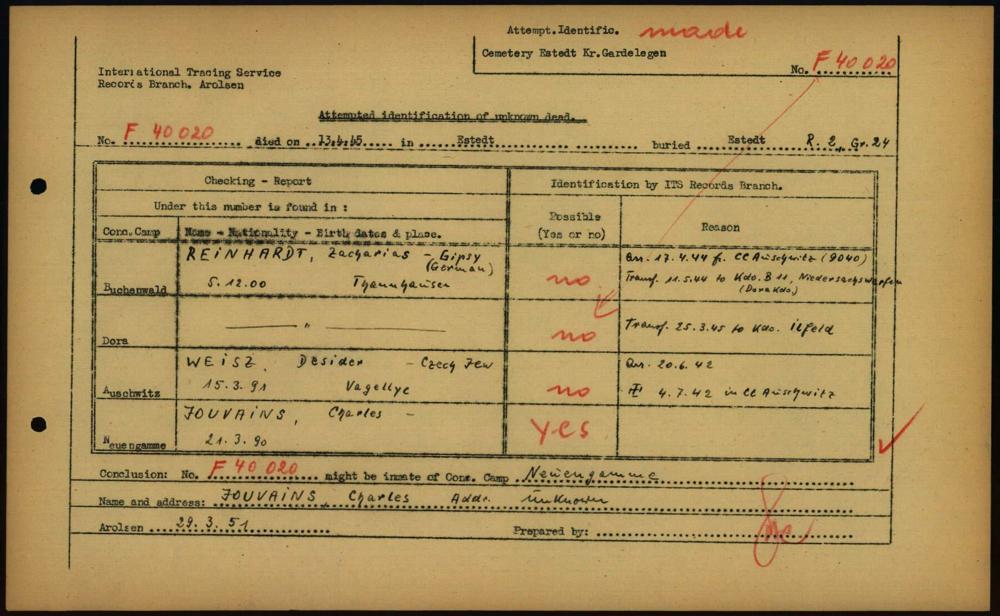 Attempt.Identific. made
Cemetery Estedt Kr.Gardelegen
No. F 40 020
International Tracing Service
Records Branch. Arolsen
Attempted identification of unknown dead.
No. F 40020 died on 13.4.45 in Estedt buried Estedt R. 2, Gr. 24
Checking - Report
Identification by ITS Records Branch.
Under this number is found in :
Conc.Camp
Name - Nationality - Birth dates & place.
Possible
(Yes or no)
Reason
REINHARDT, Zacharias - Gipsy
(German)
Buchenwald 5.12.00 Thannhausen
no
arr. 17.4.44 fr. CC Auschwitz (9040)
Transf. 11.5.44 to Kdo. B 11, Niedersachswerfen
(Dora Kdo.)
Dora — " —
no
Transf. 25.3.45 to Kdo. ilfeld
WEISZ, Desider - Czech Jew
Auschwitz 15.3.91 Vagellye
no
Arr. 20.6.42
4.7.42 in CC Auschwitz
JOUVAINS, Charles -
Neuengamme 21.3.90
Yes
Conclusion: No. F 40 020 might be inmate of Conc. Camp Neuengamme
Name and address: JOUVAINS, Charles Addr. unknown
Arolsen 29.3.51 Prepared by: